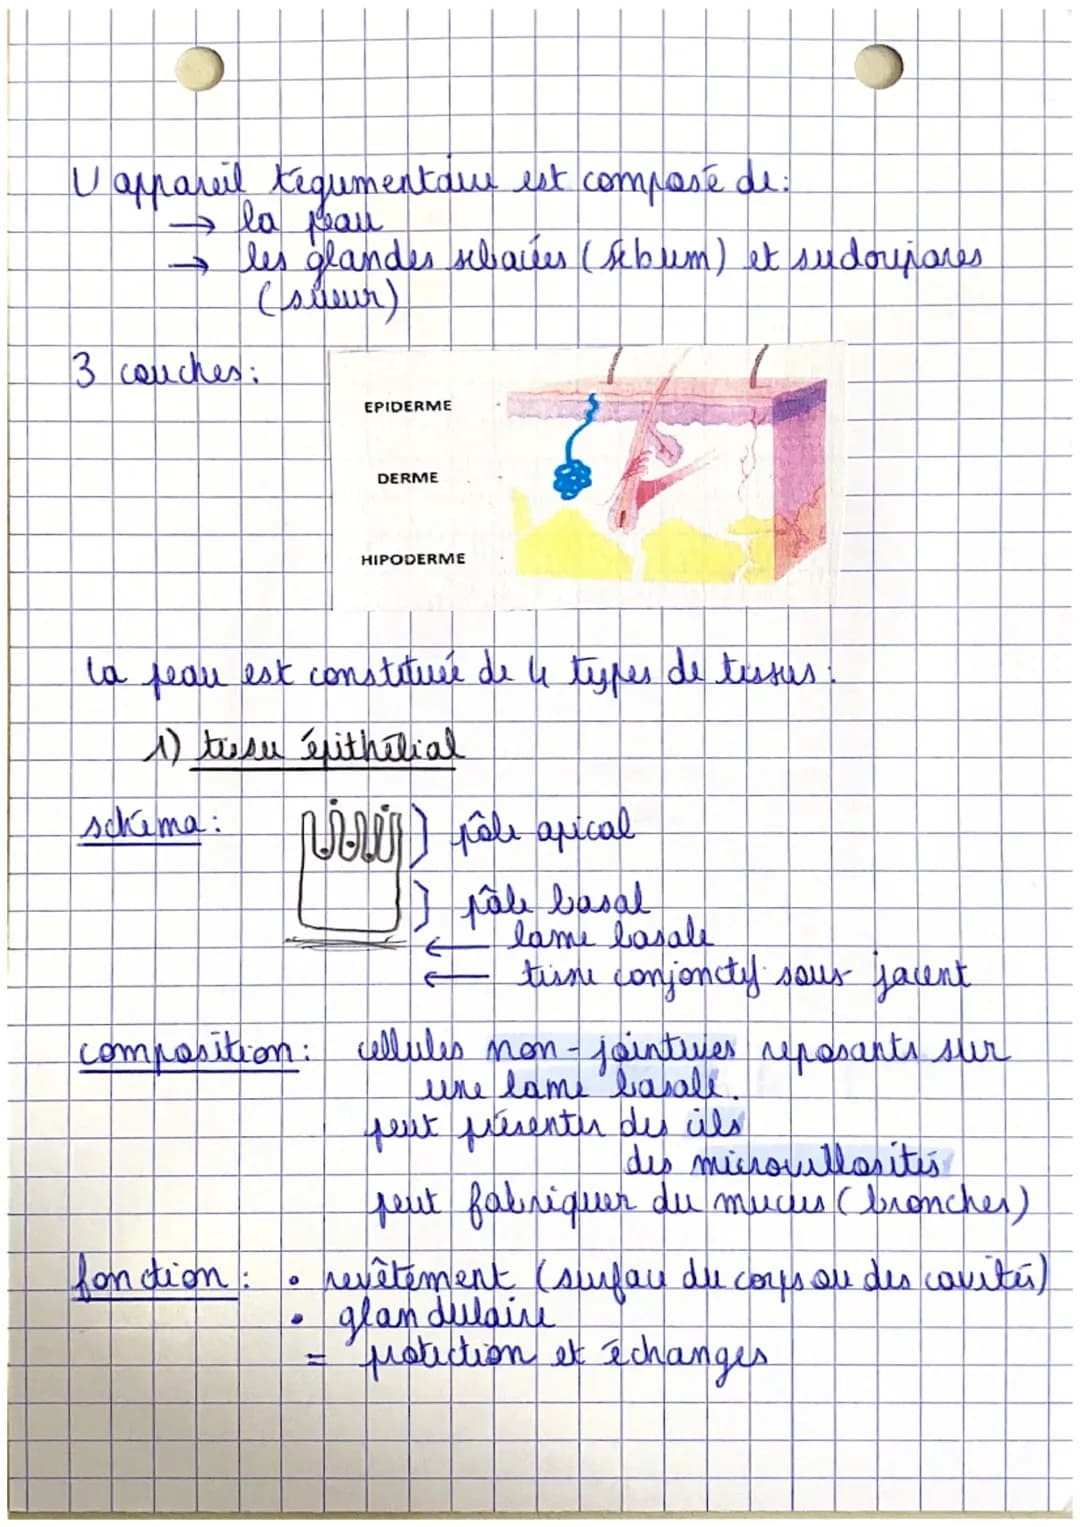 L'appareil tégumentaire est composé de:
→ la peau
→ les glandes sébacées (sébum) et sudoripares
(sueur)
3 couches:
EPIDERME
DERME
HIPODERME
La peau est constituée de 4 types de tissus:
1) tissu épithélial
schéma:
pôle apical
pôle basal
← lame basale
← tissu conjonctif sous-jacent
composition: cellules non-jointives reposants sur
une lame basale.
peut présenter des cils
des microvillosités
peut fabriquer du mucus (bronches)
fonction: • revêtement (surface du corps ou des cavités)
• glandulaire
= protection et échanges